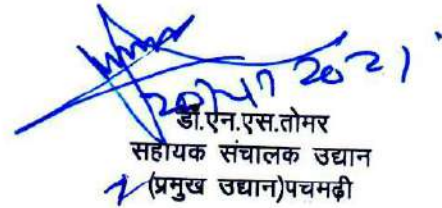 2021
डॉ.एन.एस.तोमर
सहायक संचालक उद्यान
(प्रमुख उद्यान)पचमढ़ी